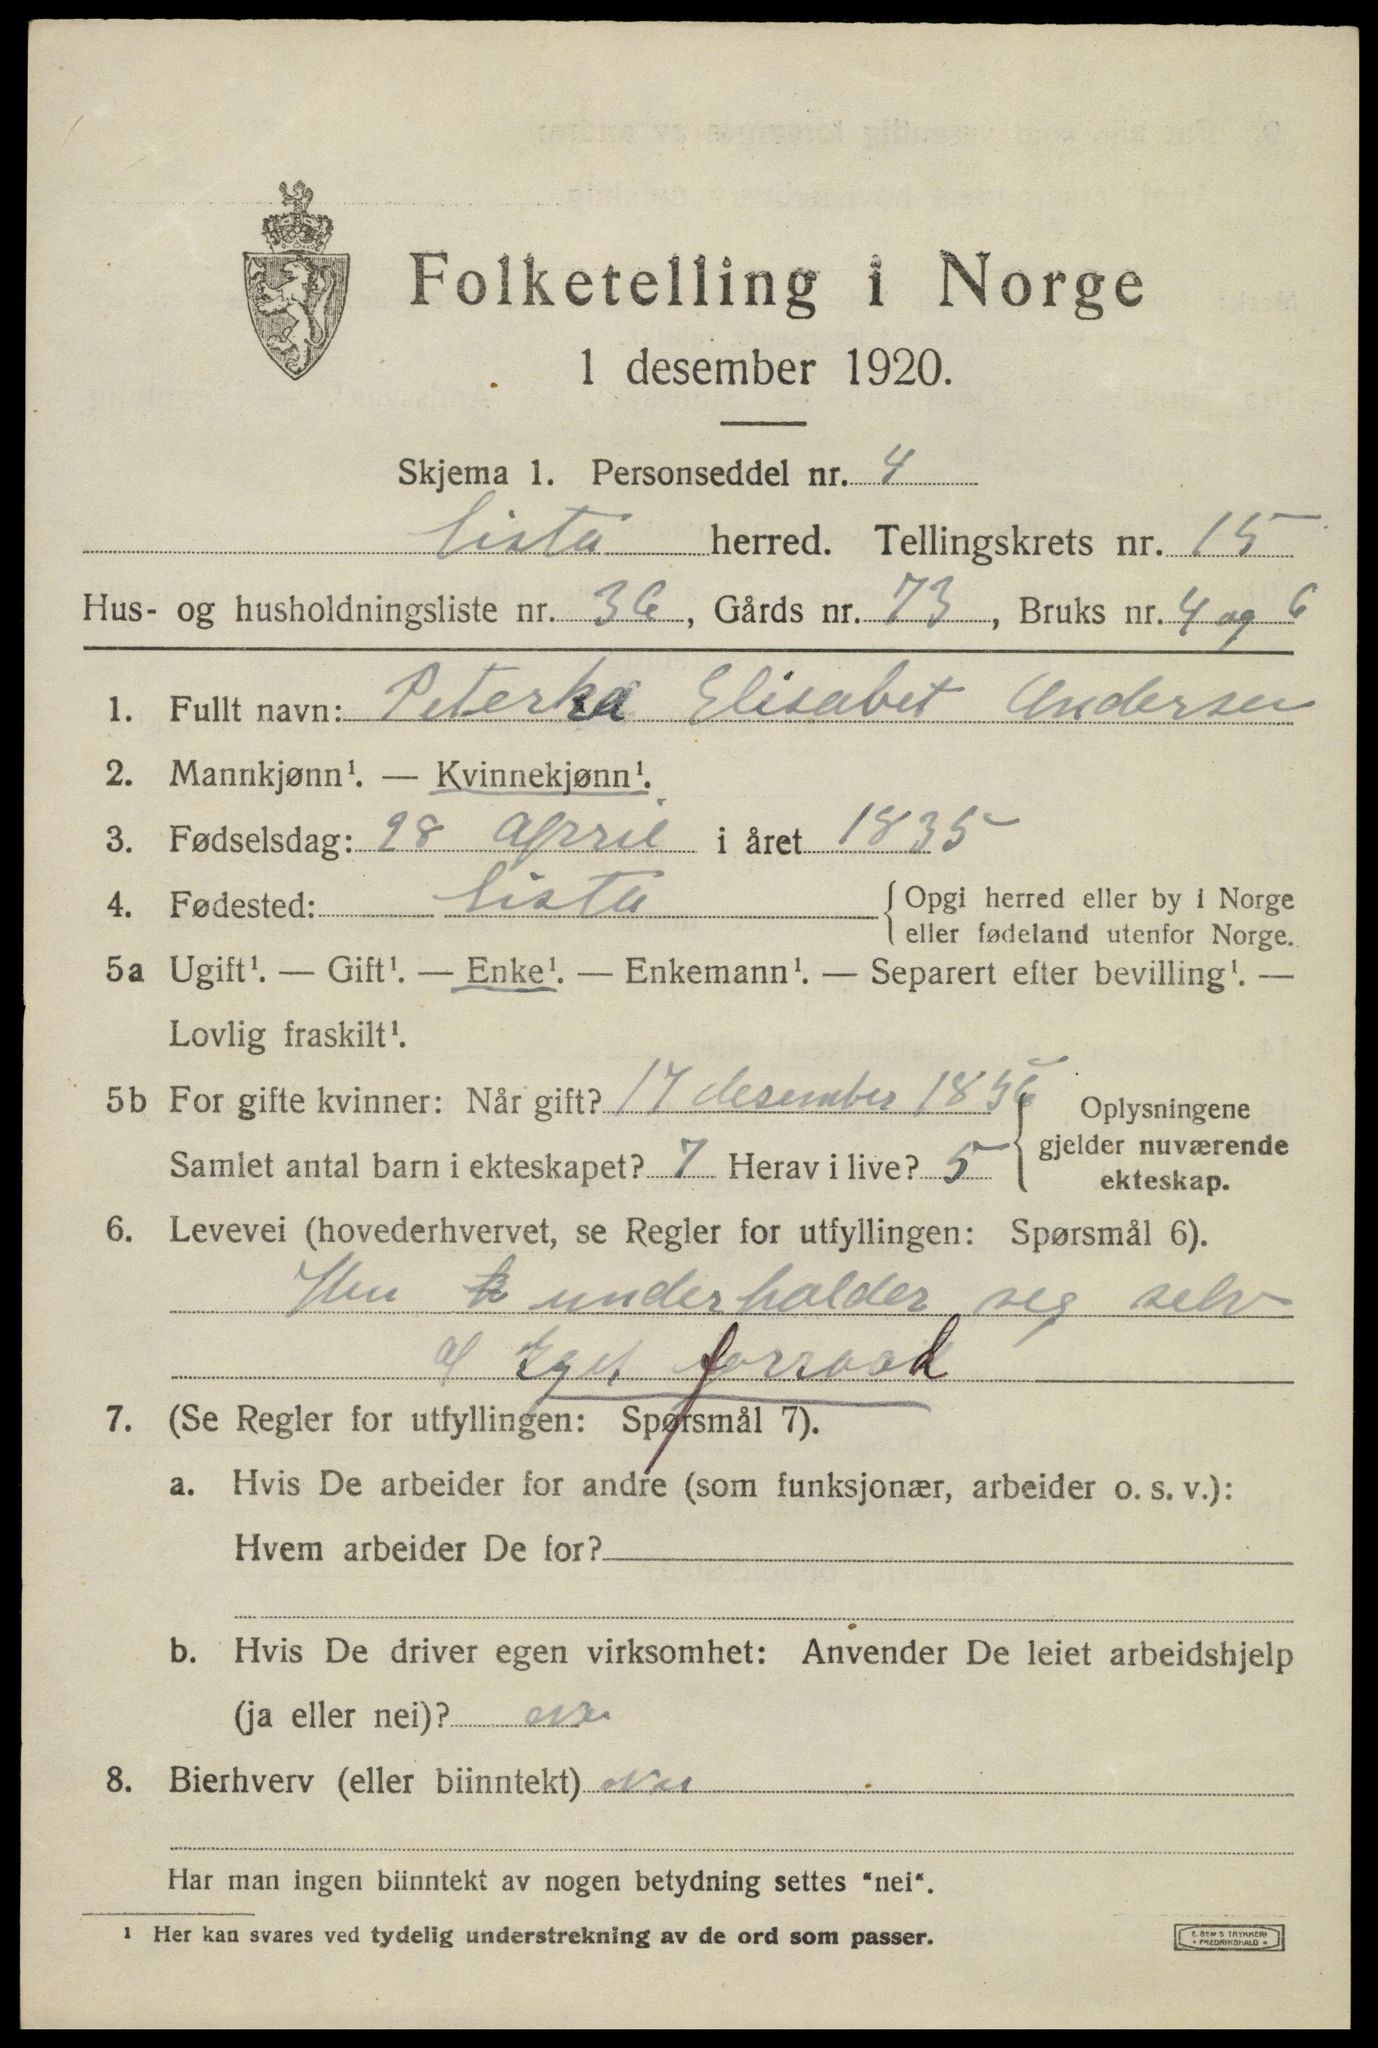 Folketelling i Norge
1 desember 1920.
Skjema 1. Personseddel nr. 4
Lista herred. Tellingskrets nr. 15
Hus- og husholdningsliste nr. 36, Gårds nr. 73, Bruks nr. 4 og 6
1. Fullt navn: Peterka Elisabet Andersen
2. Mannkjønn¹. — Kvinnekjønn¹.
3. Fødselsdag: 28 april i året 1835
4. Fødested: Lista {Opgi herred eller by i Norge
eller fødeland utenfor Norge.
5a Ugift¹. — Gift¹. — Enke¹. — Enkemann¹. — Separert efter bevilling¹. —
Lovlig fraskilt¹.
5b For gifte kvinner: Når gift? 17 desember 1856
Samlet antal barn i ekteskapet? 7 Herav i live? 5
Oplysningene
gjelder nuværende
ekteskap.
6. Levevei (hovederhvervet, se Regler for utfyllingen: Spørsmål 6).
Hun underholder seg selv
af Eget forraad
7. (Se Regler for utfyllingen: Spørsmål 7).
a. Hvis De arbeider for andre (som funksjonær, arbeider o. s. v.):
Hvem arbeider De for?
b. Hvis De driver egen virksomhet: Anvender De leiet arbeidshjelp
(ja eller nei)? nei
8. Bierhverv (eller biinntekt) nei
Har man ingen biinntekt av nogen betydning settes "nei".
¹ Her kan svares ved tydelig understrekning av de ord som passer.
E. SEM'S TRYKKERI
• FREDRIKSHALD •